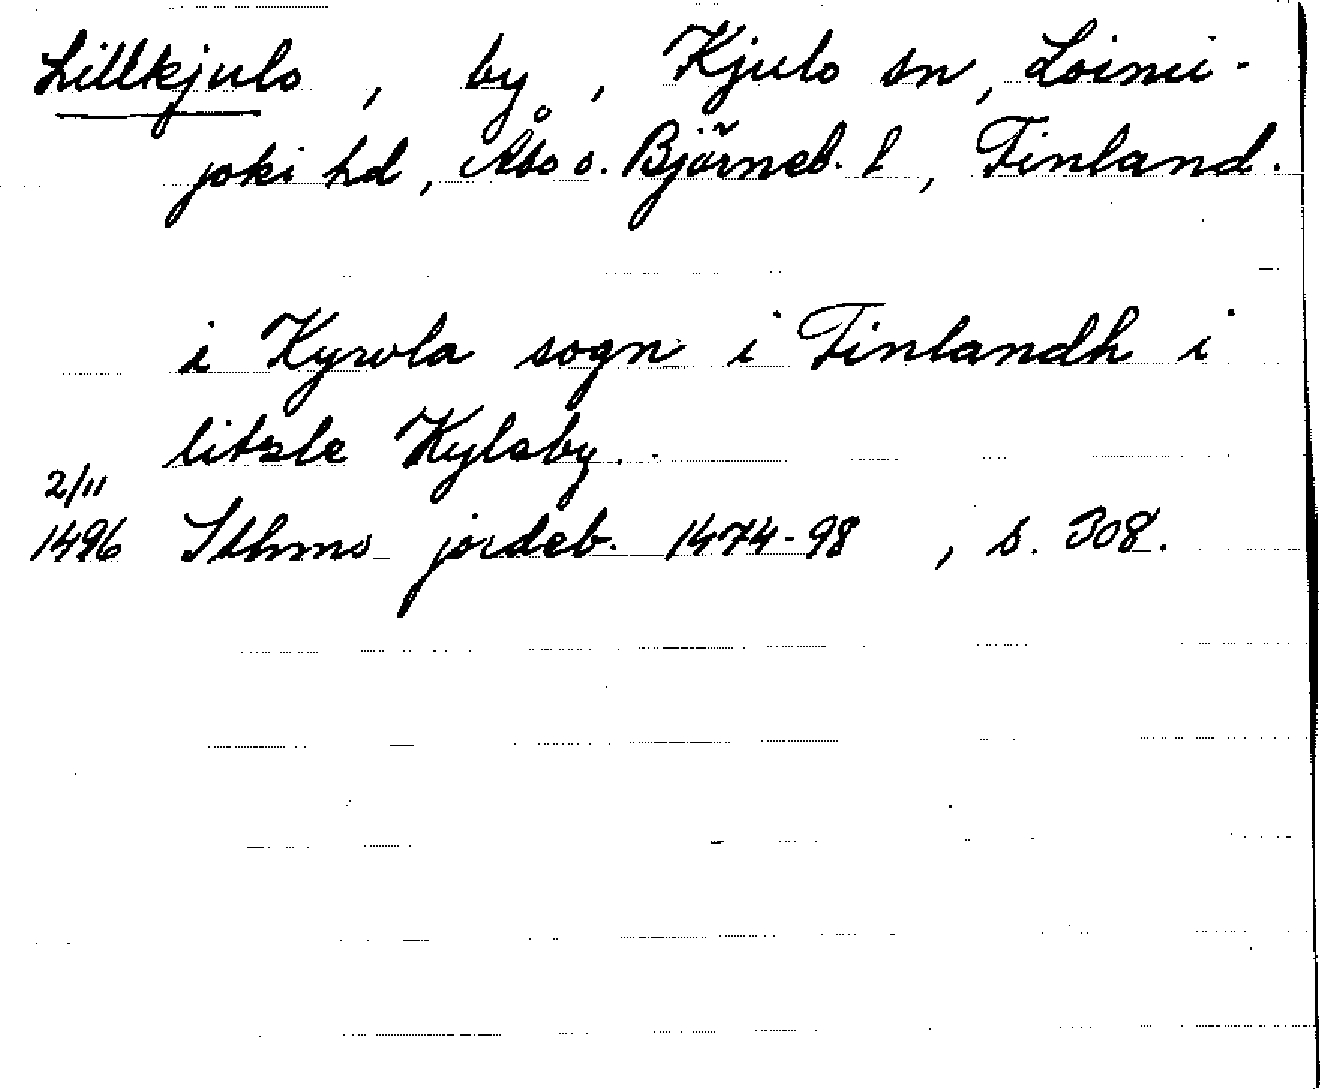 Lillkjulo, by, Kjulo sn, Loimi-
joki hd, Åbo o. Björneb. l, Finland.
i Kyrola sogn i Finlandh i
litzle Kylaby.
2/11
1496 Sthms jordeb. 1474-98, s. 308.